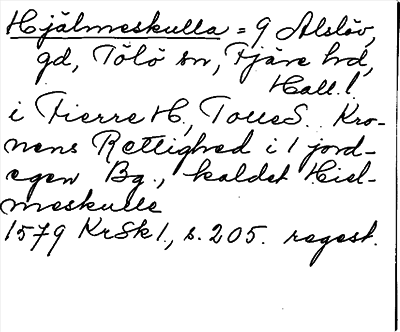 Hjälmeskulla = 9 Alslöv,
gd, Tölö sn, Fjäre hd,
Hall.l.
i Fierre H., Tolle S. Kro-
nens Rettighed i 1 jord-
egen Bg., kaldet Hiel-
meskulle
1579 KrSk1., s. 205. regest.